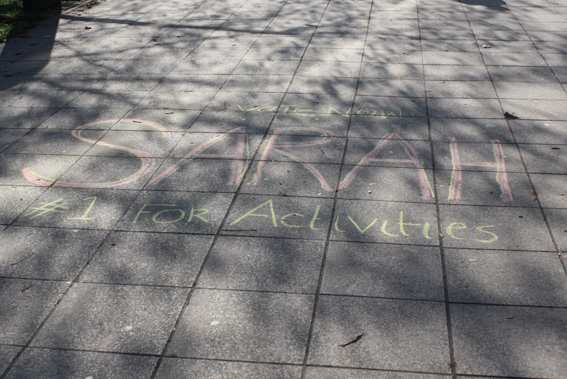 Vote Now
SARAH
#1 FOR Activities